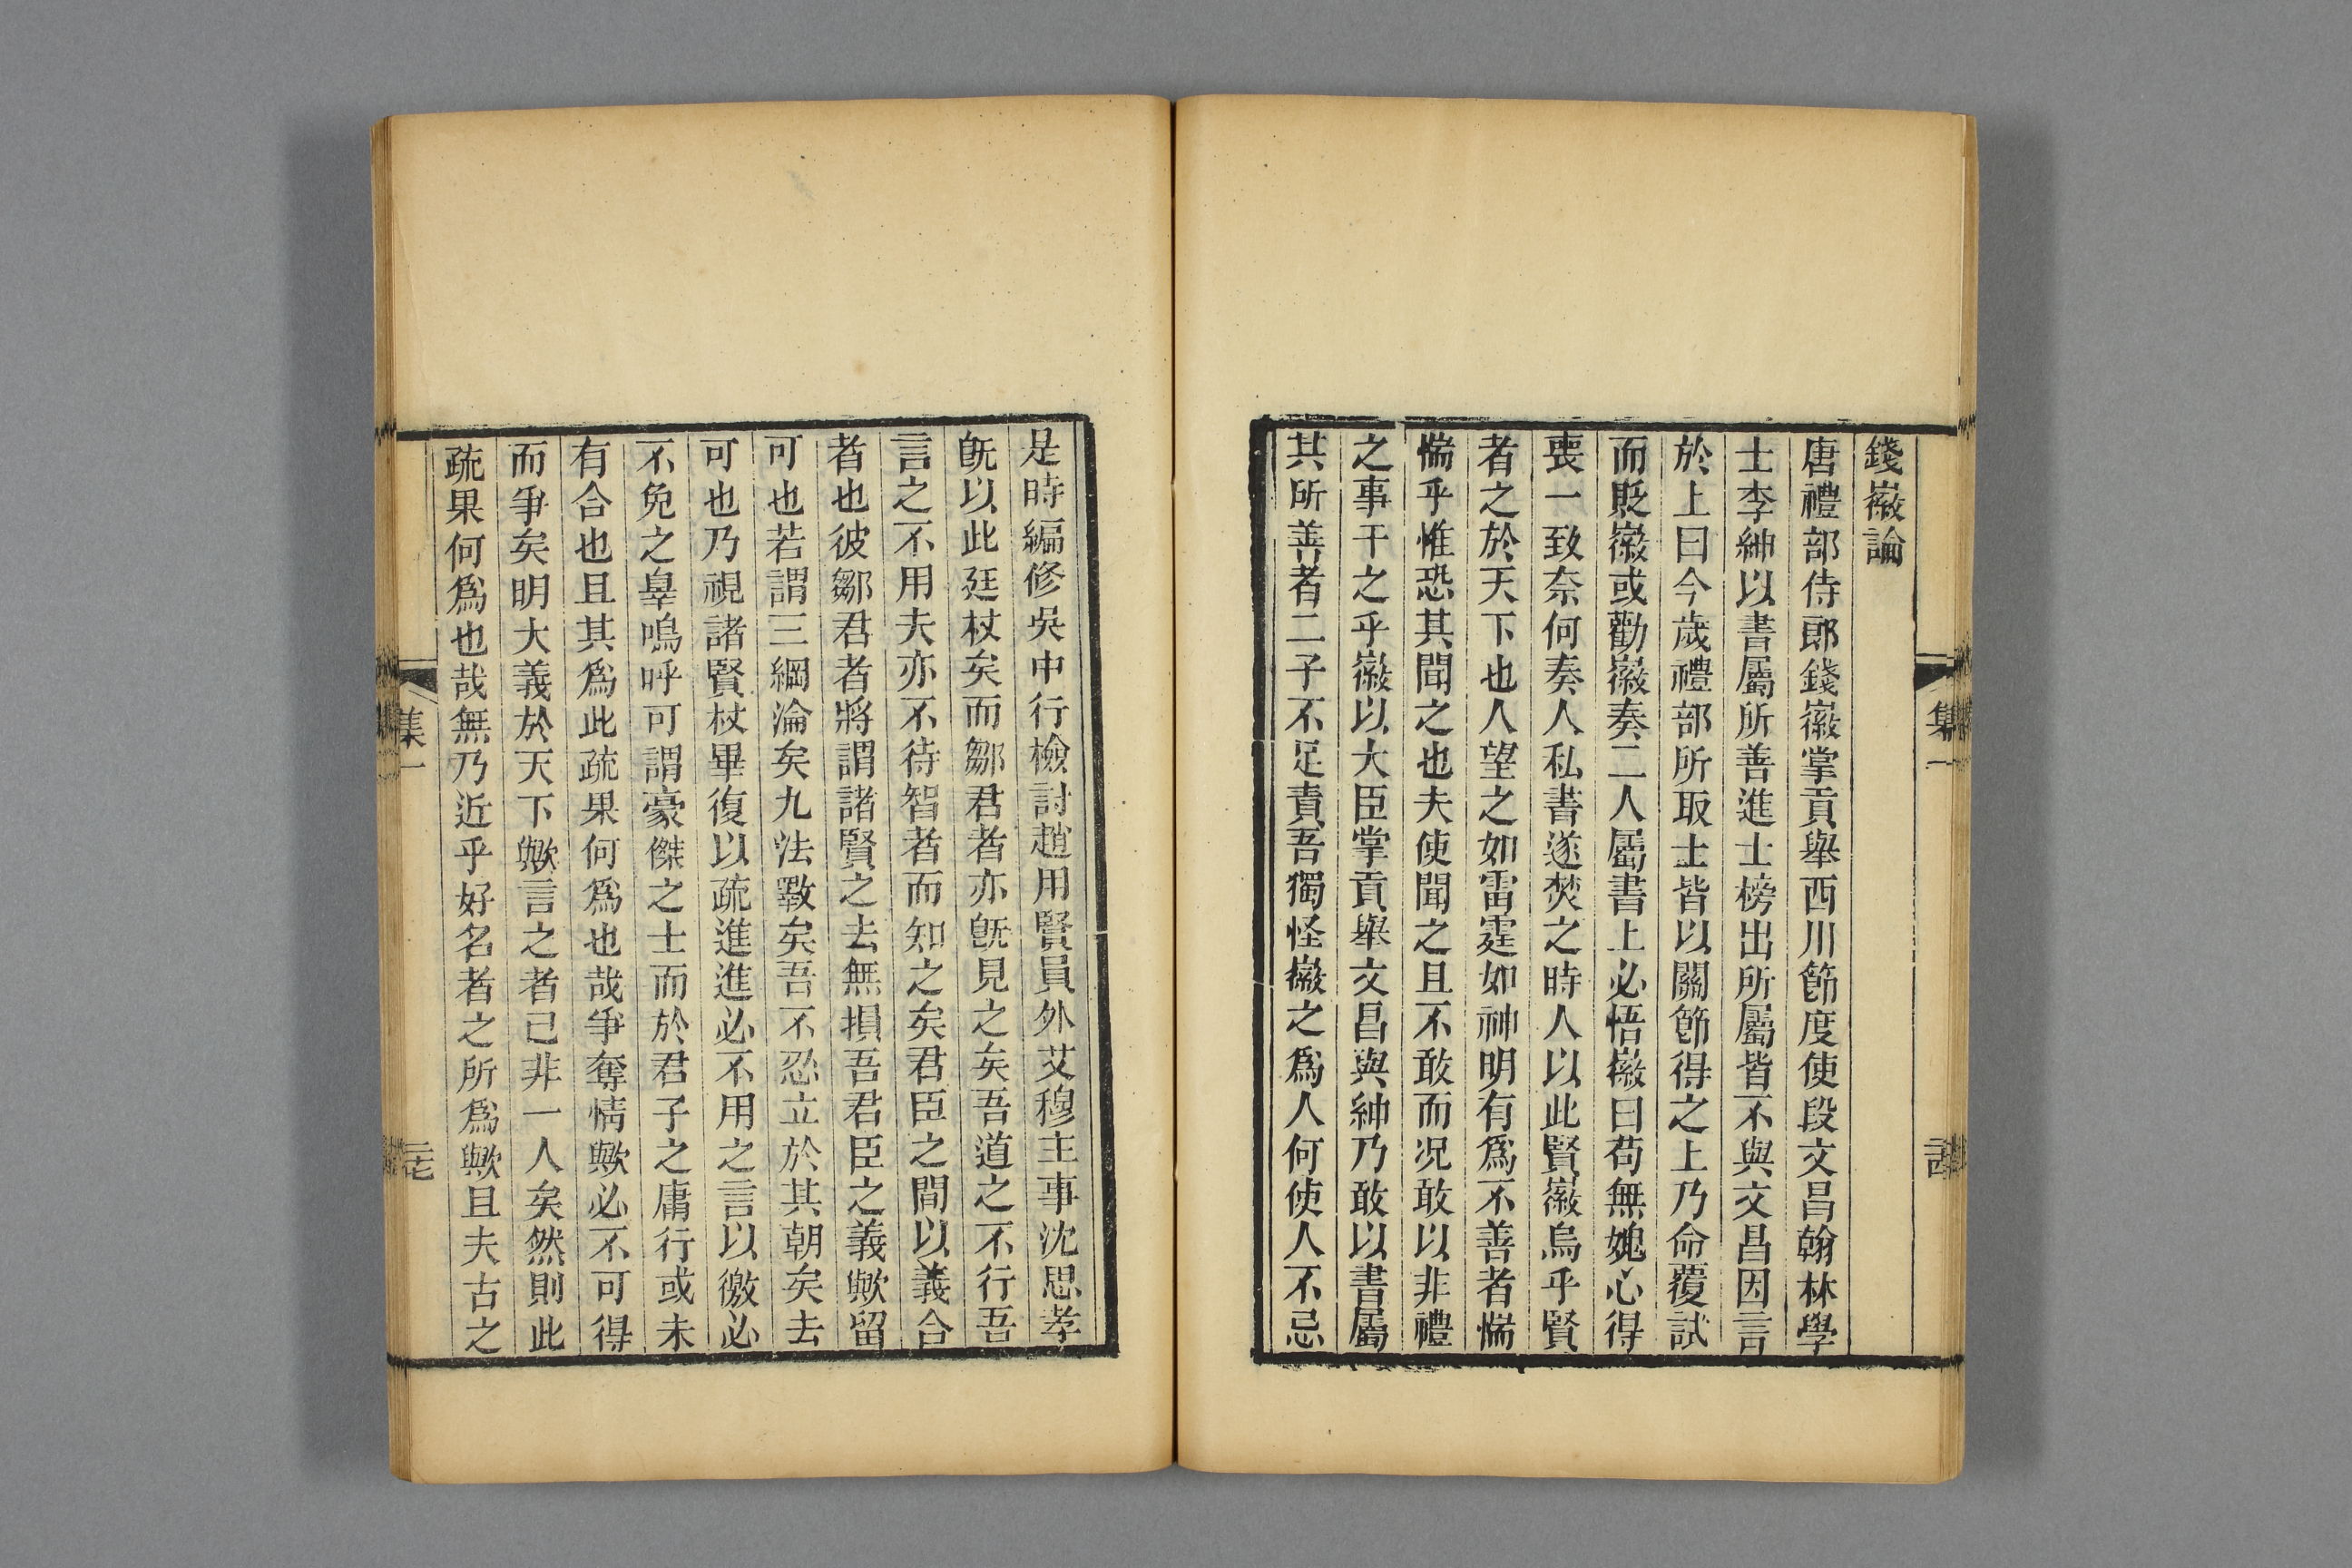 錢徽論
唐禮部侍郎錢徽掌貢舉西川節度使段文昌翰林學
士李紳以書屬所善進士榜出所屬皆不與文昌因言
於上曰今歲禮部所取士皆以關節得之上乃命覆試
而貶徽或勸徽奏二人屬書上必悟徽曰苟無愧心得
喪一致奈何奏人私書遂焚之時人以此賢徽烏乎賢
者之於天下也人望之如雷霆如神明有爲不善者惴
惴乎惟恐其聞之也夫使聞之且不敢而況敢以非禮
之事干之乎徽以大臣掌貢舉文昌與紳乃敢以書屬
其所善者二子不足責吾獨怪徽之爲人何使人不忌
集一
是時編修吳中行檢討趙用賢員外艾穆主事沈思孝
旣以此廷杖矣而鄒君者亦旣見之矣吾道之不行吾
言之不用夫亦不待智者而知之矣君臣之間以義合
者也彼鄒君者將謂諸賢之去無損吾君臣之義歟留
可也若謂三綱淪矣九法斁矣吾不忍立於其朝矣去
可也乃視諸賢杖畢復以疏進進必不用之言以徼必
不免之辠嗚呼可謂豪傑之士而於君子之庸行或未
有合也且其爲此疏果何爲也哉爭奪情歟必不可得
而爭矣明大義於天下歟言之者已非一人矣然則此
疏果何爲也哉無乃近乎好名者之所爲歟且夫古之
集一